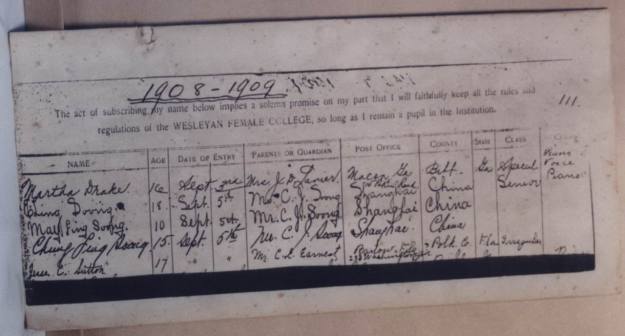 1908-1909
The act of subscribing my name below implies a solemn promise on my part that I will faithfully keep all the rules and
regulations of the WESLEYAN FEMALE COLLEGE, so long as I remain a pupil in the Institution.
111.
NAME AGE DATE OF ENTRY PARENTS OR GUARDIAN POST OFFICE COUNTY STATE CLASS
Martha Drake 16 Sept Mrs. J. D. Macon Ga Bibb Ga Special Piano Voice
Ching Soong 18 Sept. 5th Mr. C. J. Soong Shanghai China Senior Piano
May Ling Soong 10 Sept. 5th Mr. C. J. Soong Shanghai China
Ching Ling Soong 15 Sept. 5th Mr. C. J. Soong Shanghai China
C. Sutton 17 " " Mr. C. L. Earnest Polk C. Fla Irregular